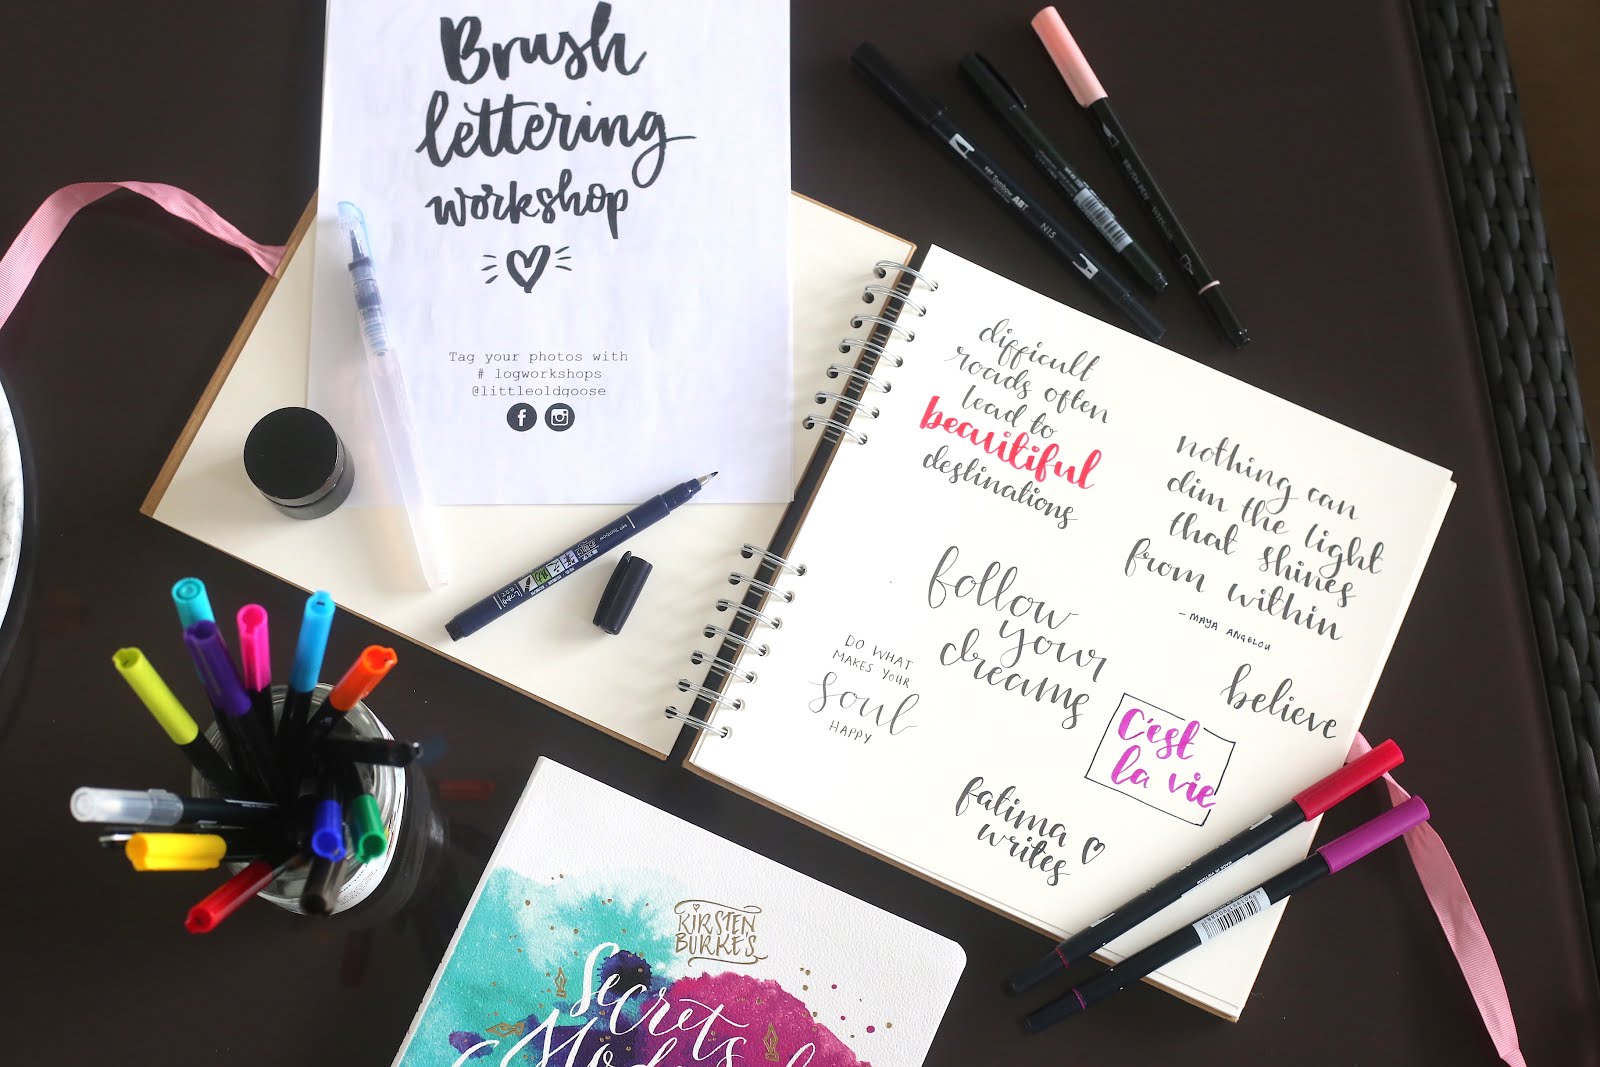 Brush
lettering
workshop
Tag your photos with
# logworkshops
@littleoldgoose
f
difficult
roads often
lead to
beautiful
destinations
nothing can
dim the light
that shines
from within
- MAYA ANGELOU
follow
your
dreams
DO WHAT
MAKES YOUR
soul
HAPPY
believe
C'est
la vie
fatima
writes
KIRSTEN
BURKE'S
Secrets
Tombow ABT
N15
BRUSH PEN
Tombow